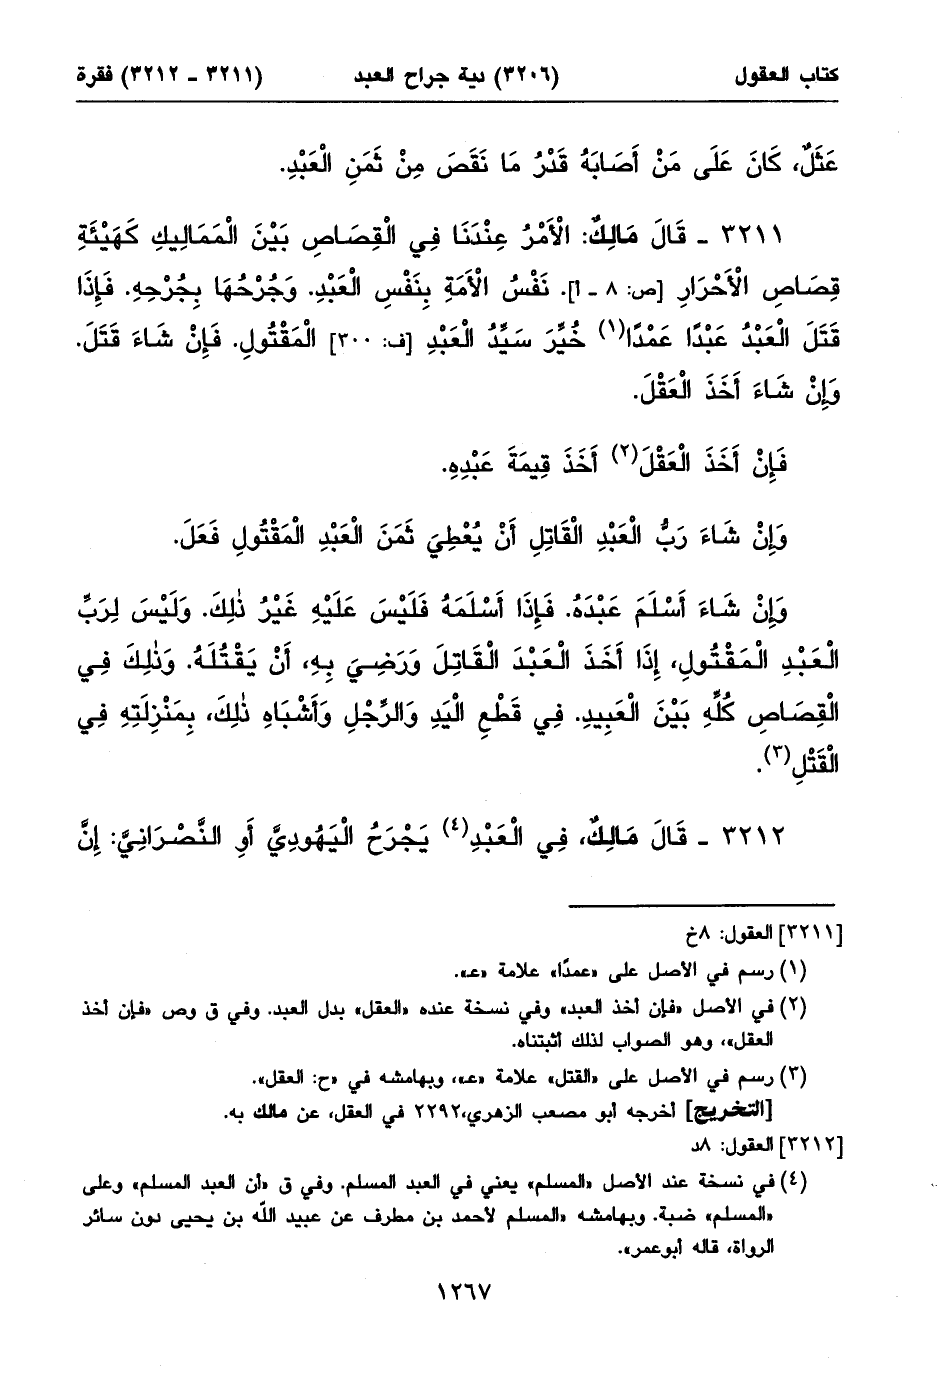 كتاب العقول (٣٢٠٦) دية جراح العبد (٣٢١١ - ٣٢١٢) فقرة
عَثَلٌ، كَانَ عَلَى مَنْ أَصَابَهُ قَدْرُ مَا نَقَصَ مِنْ ثَمَنِ الْعَبْدِ.
٣٢١١ - قَالَ مَالِكٌ: الْأَمْرُ عِنْدَنَا فِي الْقِصَاصِ بَيْنَ الْمَمَالِيكِ كَهَيْئَةِ
قِصَاصِ الْأَحْرَارِ [ص: ٨ - أ]. نَفْسُ الْأَمَةِ بِنَفْسِ الْعَبْدِ. وَجُرْحُهَا بِجُرْحِهِ. فَإِذَا
قَتَلَ الْعَبْدُ عَبْدًا عَمْدًا(١) خُيِّرَ سَيِّدُ الْعَبْدِ [ف: ٣٠٠] الْمَقْتُولِ. فَإِنْ شَاءَ قَتَلَ.
وَإِنْ شَاءَ أَخَذَ الْعَقْلَ.
فَإِنْ أَخَذَ الْعَقْلَ(٢) أَخَذَ قِيمَةَ عَبْدِهِ.
وَإِنْ شَاءَ رَبُّ الْعَبْدِ الْقَاتِلِ أَنْ يُعْطِيَ ثَمَنَ الْعَبْدِ الْمَقْتُولِ فَعَلَ.
وَإِنْ شَاءَ أَسْلَمَ عَبْدَهُ. فَإِذَا أَسْلَمَهُ فَلَيْسَ عَلَيْهِ غَيْرُ ذٰلِكَ. وَلَيْسَ لِرَبِّ
الْعَبْدِ الْمَقْتُولِ، إِذَا أَخَذَ الْعَبْدَ الْقَاتِلَ وَرَضِيَ بِهِ، أَنْ يَقْتُلَهُ. وَذٰلِكَ فِي
الْقِصَاصِ كُلِّهِ بَيْنَ الْعَبِيدِ. فِي قَطْعِ الْيَدِ وَالرِّجْلِ وَأَشْبَاهِ ذٰلِكَ، بِمَنْزِلَتِهِ فِي
الْقَتْلِ(٣).
٣٢١٢ - قَالَ مَالِكٌ، فِي الْعَبْدِ(٤) يَجْرَحُ الْيَهُودِيَّ أَوِ النَّصْرَانِيَّ: إِنَّ
[٣٢١١] العقول: ٨خ
(١) رسم في الأصل على «عمدًا» علامة «عـ».
(٢) في الأصل «فإن أخذ العبد» وفي نسخة عنده «العقل» بدل العبد. وفي ق وص «فإن أخذ
العقل»، وهو الصواب لذلك أثبتناه.
(٣) رسم في الأصل على «القتل» علامة «عـ»، وبهامشه في «ح: العقل».
[التخريج] أخرجه أبو مصعب الزهري،٢٢٩٢ في العقل، عن مالك به.
[٣٢١٢] العقول: ٨د
(٤) في نسخة عند الأصل «المسلم» يعني في العبد المسلم. وفي ق «أن العبد المسلم» وعلى
«المسلم» ضبة. وبهامشه «المسلم لأحمد بن مطرف عن عبيد الله بن يحيى دون سائر
الرواة، قاله أبوعمر».
١٢٦٧